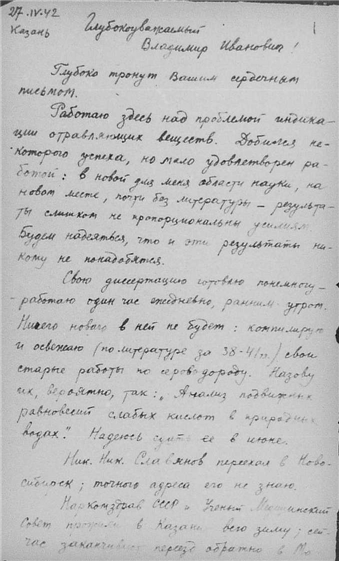 27.IV.42
Казань
Глубокоуважаемый
Владимир Иванович!
Глубоко тронут Вашим сердечным
письмом.
Работаю здесь над проблемой индика-
ции отравляющих веществ. Добился не-
которого успеха, но мало удовлетворен ра-
ботой: в новой для меня области науки, на
новом месте, почти без литературы – результа-
ты слишком не пропорциональны усилиям.
Будем надеяться, что и эти результаты ни-
кому не понадобятся.
Свою диссертацию готовлю понемногу –
– работаю один час ежедневно, ранним утром.
Ничего нового в ней не будет: компилирую
и освежаю (по литературе за 38-41 гг.) свои
старые работы по сероводороду. Назову
их, вероятно, так: „Анализ подвижных
равновесий слабых кислот в природных
водах". Надеюсь сдать ее в июне.
Ник. Ник. Славянов переехал в Ново-
сибирск; точного адреса его не знаю.
Наркомздрав СССР и Ученый Медицинский
Совет прожили в Казани всю зиму; сей-
час заканчивают переезд обратно в Мо